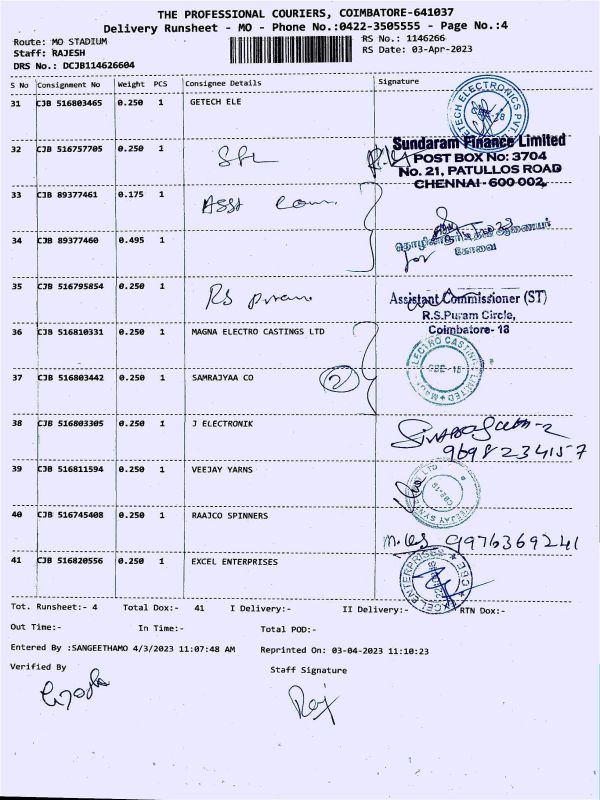 THE PROFESSIONAL COURIERS, COIMBATORE-641037
Delivery Runsheet - MO - Phone No.:0422-3505555 - Page No.:4
Route: MO STADIUM
RS No.: 1146266
Staff: RAJESH
RS Date: 03-Apr-2023
DRS No.: DCJB114626604
S No Consignment No Weight PCS Consignee Details Signature
31 CJB 516803465 0.250 1 GETECH ELE
GETECH ELECTRONICS PVT.
32 CJB 516757705 0.250 1
Sundaram Finance Limited
POST BOX No: 3704
No. 21, PATULLOS ROAD
CHENNAI - 600 002,
33 CJB 89377461 0.175 1 Asst Com.
34 CJB 89377460 0.495 1
for
கோவை
35 CJB 516795854 0.250 1 RS puram
Assistant Commissioner (ST)
R.S.Puram Circle,
Coimbatore- 18
36 CJB 516810331 0.250 1 MAGNA ELECTRO CASTINGS LTD
37 CJB 516803442 0.250 1 SAMRAJYAA CO 2
CBE - 18
38 CJB 516803305 0.250 1 J ELECTRONIK
9698234157
39 CJB 516811594 0.250 1 VEEJAY YARNS
40 CJB 516745408 0.250 1 RAAJCO SPINNERS
9976369241
41 CJB 516820556 0.250 1 EXCEL ENTERPRISES
EXCEL ENTERPRISES CBE
Tot. Runsheet:- 4 Total Dox:- 41 I Delivery:- II Delivery:- RTN Dox:-
Out Time:- In Time:- Total POD:-
Entered By :SANGEETHAMO 4/3/2023 11:07:48 AM Reprinted On: 03-04-2023 11:10:23
Verified By Staff Signature
Raj